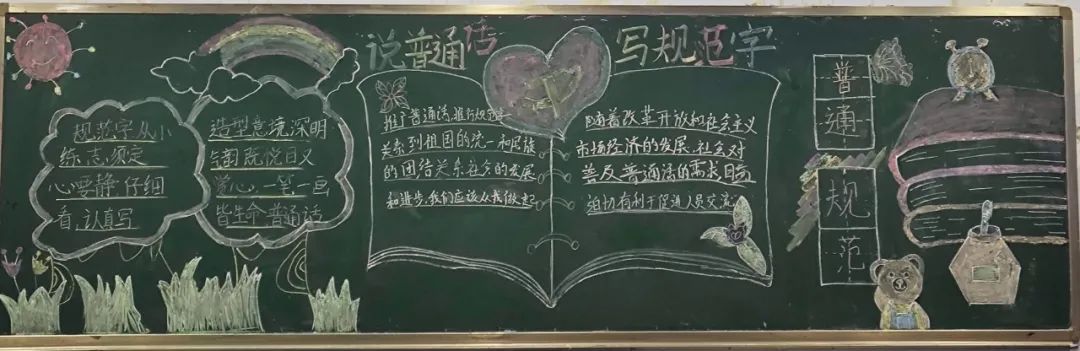 说普通话
写规范字
规范字从小
练,志须定
心要静,仔细
看,认真写
造型意境,深明
既悦目又
赏心,一笔一画
皆生命,普通话
推广普通话,推行规范
关系到祖国的统一和民族
的团结关系社会的发展
和进步,我们应该从我做起
随着改革开放和社会主义
市场经济的发展,社会对
普及普通话的需求日
迫切有利于促进人员交流
普通
规范